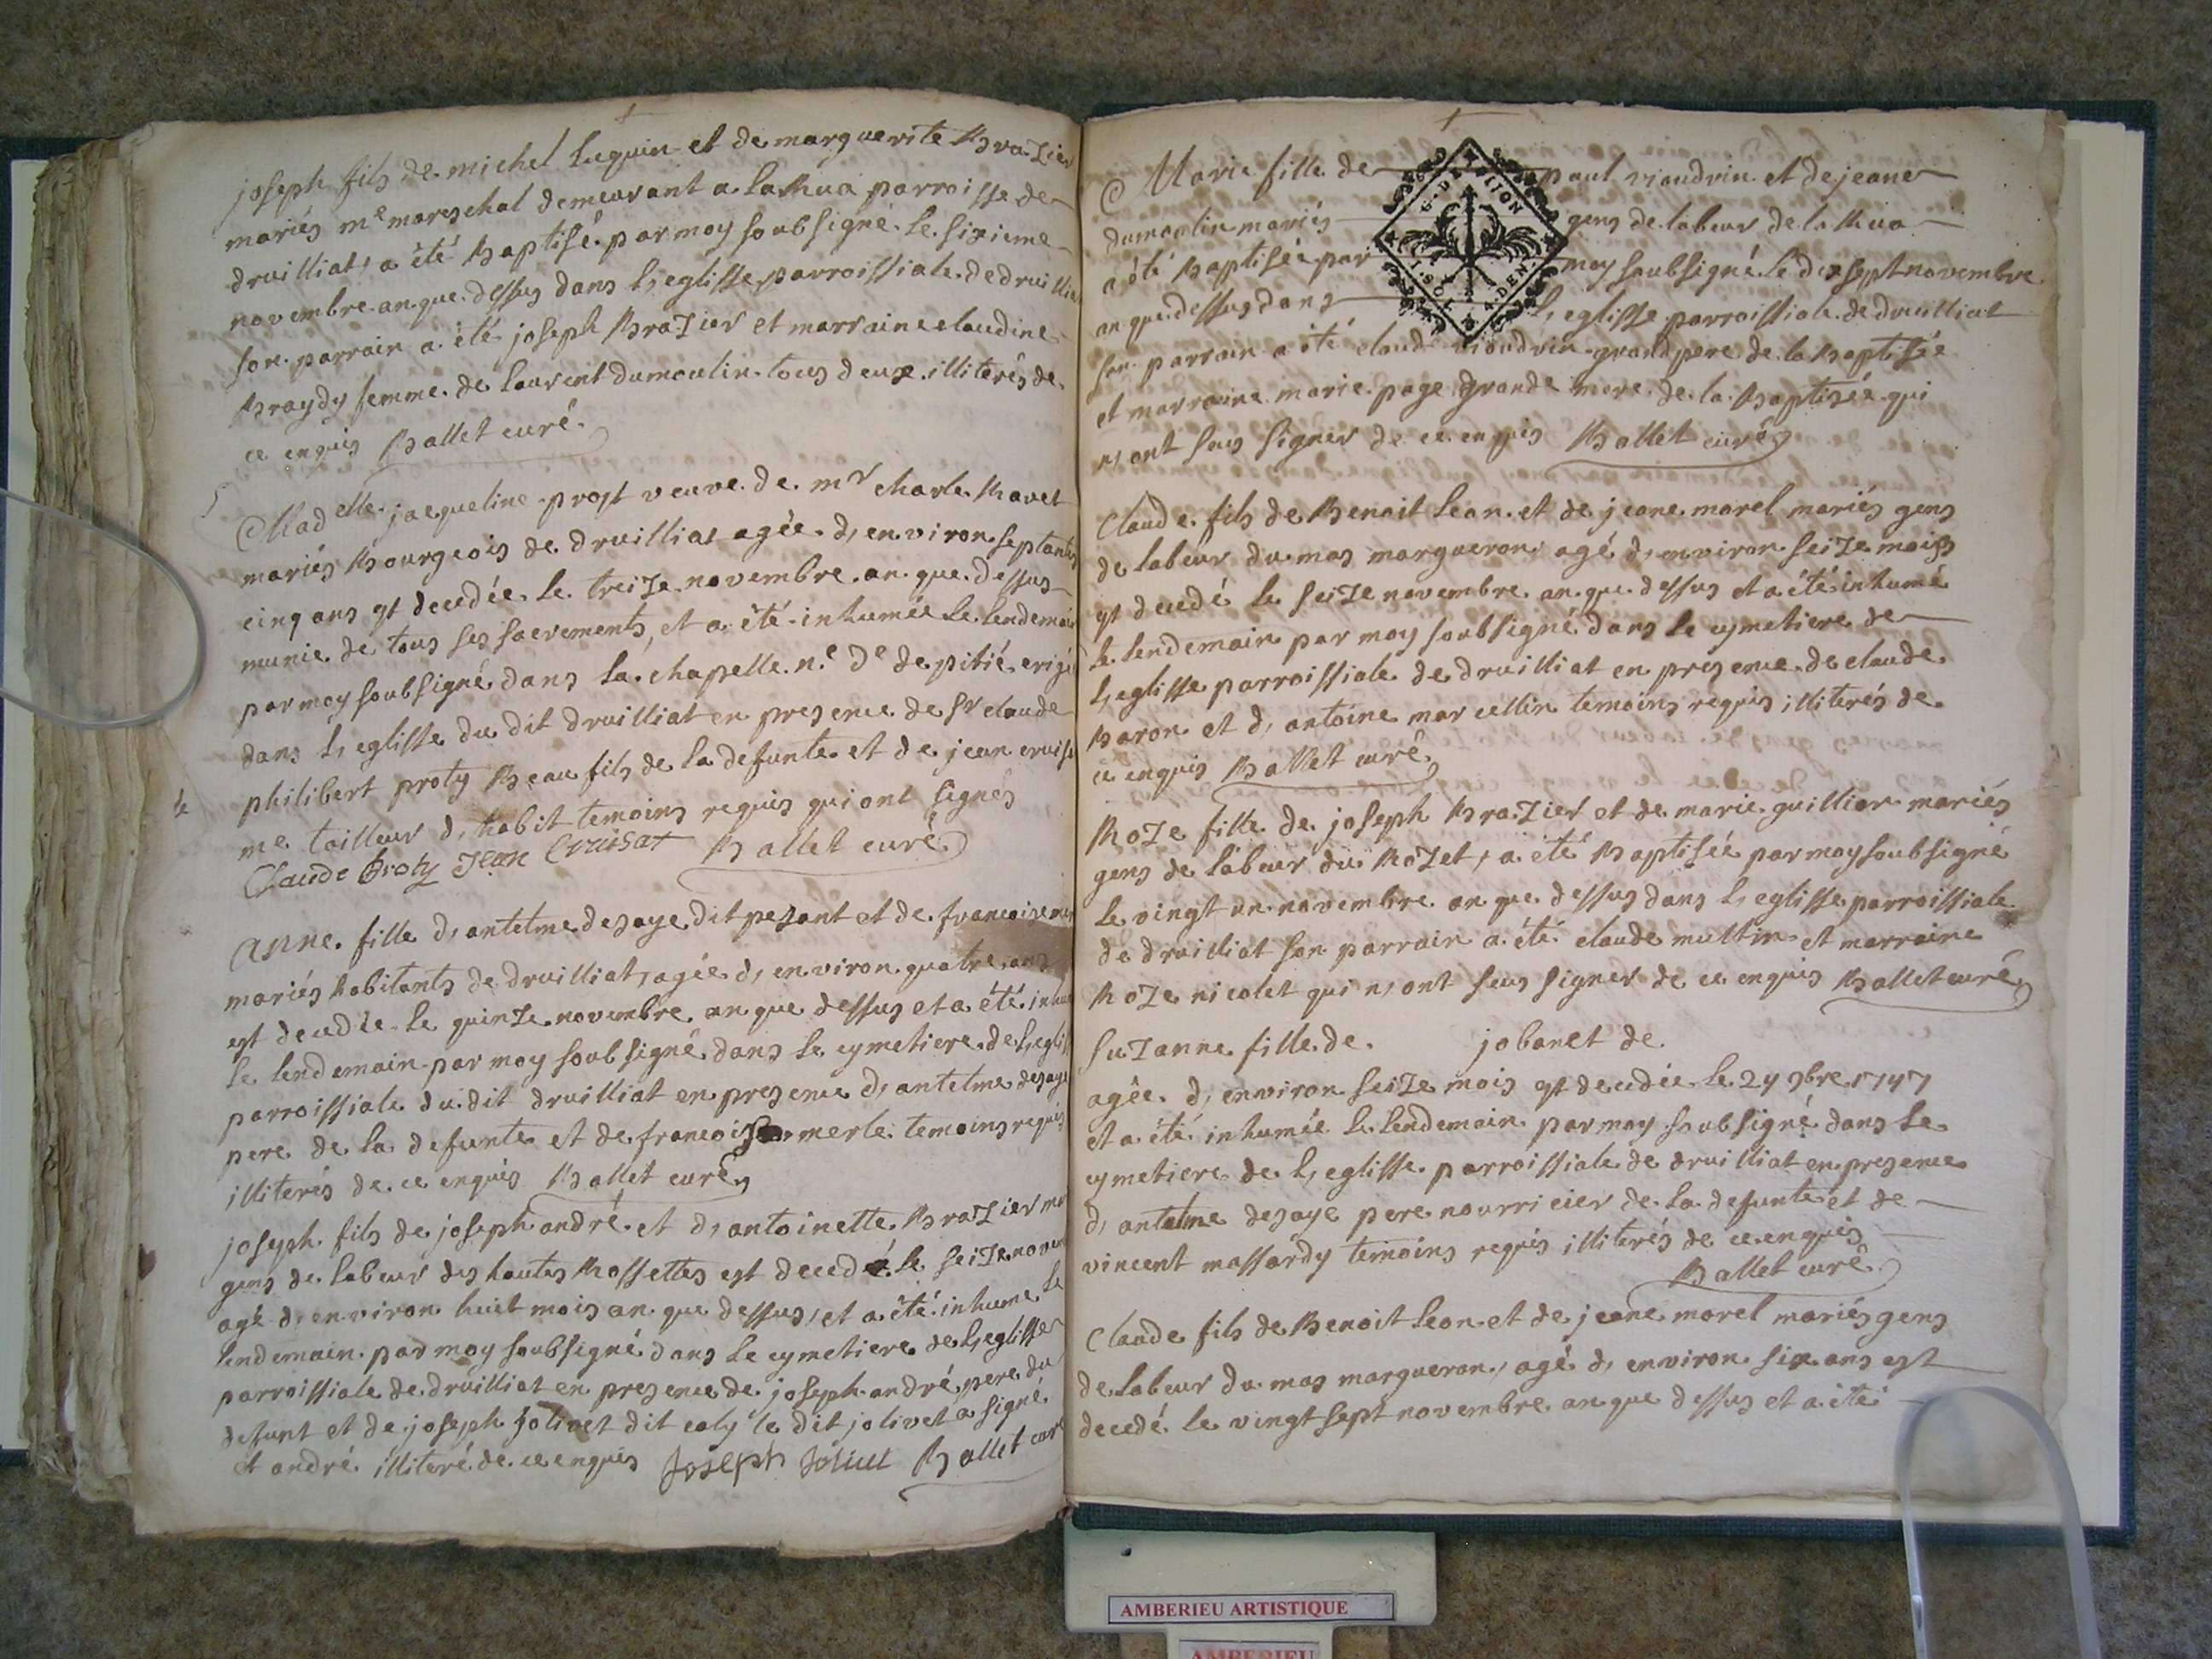 joseph fils de michel luquin et de marguerite Brazier
mariés me mareschal demeurant a la Rua parroisse de
druilliat, a été Baptisé par moy soubsigné le sixieme
novembre an que dessus dans l, eglisse parroissiale de druilliat
son parrain a été joseph Brazier et marraine claudine
Braydy femme de laurent dumoulin tous deux illiterés de
ce enquis Ballet curé
Madelle jacqueline prost veuve de mr charle Ravet
mariés Bourgeois de druilliat agée d, environ septante
cinq ans est decedée le treize novembre an que dessus
munie de tous ses sacrements, et a été inhumée le lendemain
par moy soubsigné dans la chapelle n.e De de pitié erigé
dans l, eglisse du dit druilliat en presence de sr claude
philibert proty Beau fils de la defunte et de jean cruisa
me tailleur d, habit temoins requis qui ont signés
Claude Proty Jean Cruisat Ballet curé
anne fille d, antelme desaye dit pesant et de francoise
mariés habitants de druilliat, agée d, environ quatre ans
est decedée le quinze novembre an que dessus et a été inhu
le lendemain par moy soubsigné dans le cymetiere de l, eglisse
parroissiale du dit druilliat en presence d, antelme desaye
pere de la defunte et de francois merle temoins requis
illiterés de ce enquis Ballet curé
joseph fils de joseph andré et d, antoinette Brazier mar
gens de labeur des hautes Rossettes est decedé le seize novem
agé d, environ huit mois an que dessus, et a été inhume le
lendemain par moy soubsigné dans le cymetiere de l, eglisse
parroissiale de druilliat en presence de joseph andré pere du
defunt et de joseph jolivet dit caly le dit jolivet a signé
et andré illiteré de ce enquis Joseph Joliuet Ballet curé
Marie fille de paul viaudrin et de jeane
dumoulin mariés gens de labeur de la Rua
a été Baptisée par moy soubsigné le dixsept novembre
an que dessus dans l, eglisse parroissiale de druilliat
son parrain a été claude viaudrin grand pere de la Baptisée
et marraine marie page grande mere de la Baptisée qui
n, ont sus signer de ce enquis Ballet curé
G. DE DIJON
Claude fils de Benoit leon et de jeane morel mariés gens
de labeur du mas margueron, agé d, environ seize mois
est decedé le seize novembre an que dessus et a été inhumé
le lendemain par moy soubsigné dans le cymetiere de
l, eglisse parroissiale de druilliat en presence de claude
Baron et d, antoine marcellin temoins requis illiterés de
ce enquis Ballet curé
Roze fille de joseph Brazier et de marie guillion mariés
gens de labeur du Rozet, a été Baptisée par moy soubsigné
le vingt un novembre an que dessus dans l, eglisse parroissiale
de druilliat son parrain a été claude multin et marraine
Roze nicolet qui n, ont seus signer de ce enquis Ballet curé
suzanne fille de joban et de
agée d, environ seize mois est decedée le 24 9bre 1747
et a été inhumée le lendemain par moy soubsigné dans le
cymetiere de l, eglisse parroissiale de druilliat en presence
d, antelme desaye pere nourricier de la defunte et de
vincent massardy temoins requis illiterés de ce enquis
Ballet curé
Claude fils de Benoit leon et de jeane morel mariés gens
de labeur du mas margueron, agé d, environ six ans est
decedé le vingt sept novembre an que dessus et a été
AMBERIEU ARTISTIQUE
AMBERIEU